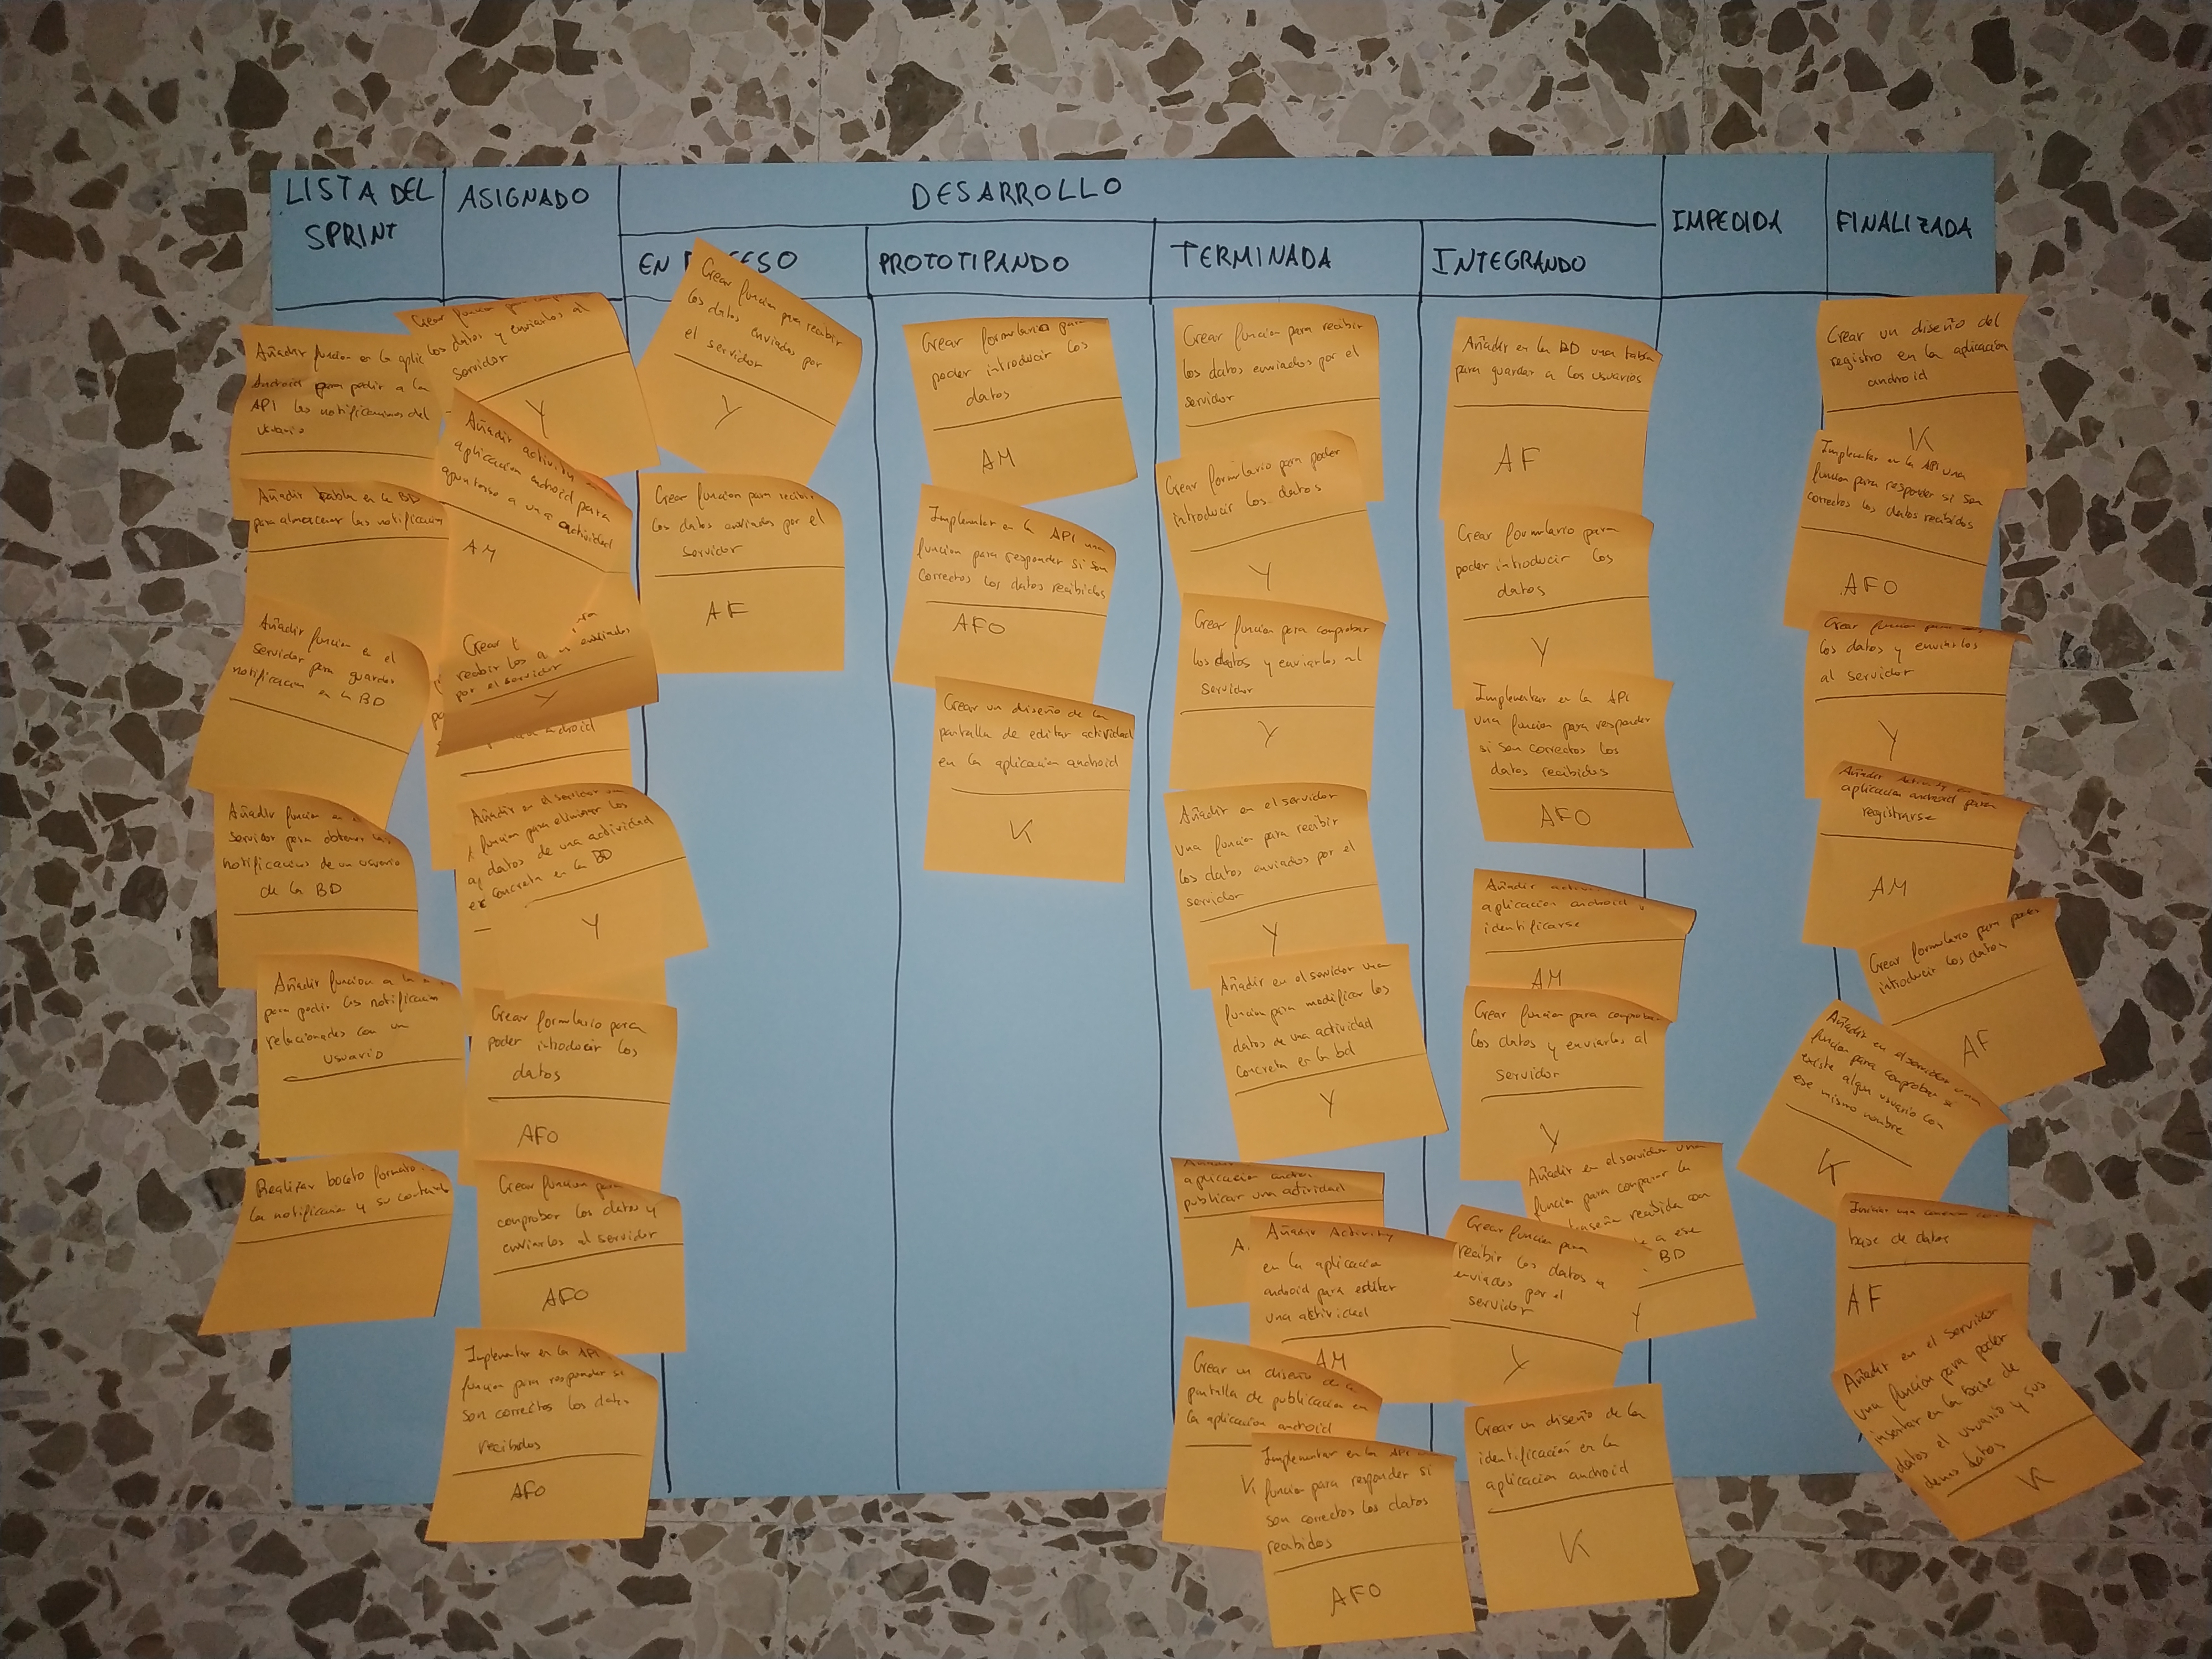 LISTA DEL
SPRINT
ASIGNADO
DESARROLLO
EN PROCESO
PROTOTIPANDO
TERMINADA
INTEGRANDO
IMPEDIDA
FINALIZADA
Añadir funcion en la
Android para pedir a la
API las notificaciones del
Usuario
Añadir tabla en la BD
para almacenar las
Añadir funcion en el
servidor para guardar
notificacion en la BD
Añadir funcion en
servidor para obtener las
notificaciones de un usuario
de la BD
Añadir funcion a la
para pedir las notificacion
relacionadas con un
usuario
Realizar boceto formato
la notificacion y su
Crear funcion para
los datos y enviarlos al
servidor
Y
Añadir
aplicacion android para
apuntarse a una actividad
AM
Crear
recibir los enviados
por el servidor
Y
android
Añadir en el servidor
funcion para eliminar los
datos de una actividad
concreta en la BD
Y
Crear formulario para
poder introducir los
datos
AFO
Crear funcion para
comprobar los datos y
enviarlos al servidor
AFO
Implementar en la API
funcion para responder si
son correctos los datos
recibidos
AFO
Crear funcion para recibir
los datos enviados por
el servidor
Y
Crear funcion para recibir
los datos enviados por el
servidor
AF
Crear formulario para
poder introducir los
datos
AM
Implementar en la API una
funcion para responder si son
correctos los datos recibidos
AFO
Crear un diseño de la
pantalla de editar actividad
en la aplicacion android
K
Crear funcion para recibir
los datos enviados por el
servidor
Crear formulario para poder
introducir los datos
Y
Crear funcion para comprobar
los datos y enviarlos al
servidor
Y
Añadir en el servidor
una funcion para recibir
los datos enviados por el
servidor
Y
Añadir en el servidor una
funcion para modificar los
datos de una actividad
concreta en la bd
Y
aplicacion
publicar una actividad
A
Añadir Activity
en la aplicacion
android para editar
una actividad
AM
Crear un diseño de la
pantalla de publicacion en
la aplicacion android
K
Implementar en la API
funcion para responder si
son correctos los datos
recibidos
AFO
Añadir en la BD una tabla
para guardar a los usuarios
AF
Crear formulario para
poder introducir los
datos
Y
Implementar en la API
una funcion para responder
si son correctos los
datos recibidos
AFO
Añadir
aplicacion android
identificarse
AM
Crear funcion para comprobar
los datos y enviarlos al
servidor
Y
Añadir en el servidor una
funcion para comparar la
recibida con
a ese
BD
Y
Crear funcion para
recibir los datos
enviados por el
servidor
Y
Crear un diseño de la
identificación en la
aplicacion android
K
Crear un diseño del
registro en la aplicación
android
K
Implementar en la API una
funcion para responder si son
correctos los datos recibidos
AFO
Crear funcion para
los datos y enviarlos
al servidor
Y
Añadir Activity en
aplicacion android para
registrarse
AM
Crear formulario para poder
introducir los datos
AF
Añadir en el servidor una
funcion para comprobar si
existe algun usuario con
ese mismo nombre
K
una
base de datos
AF
Añadir en el servidor
una funcion para poder
insertar en la base de
datos el usuario y sus
demas datos
K